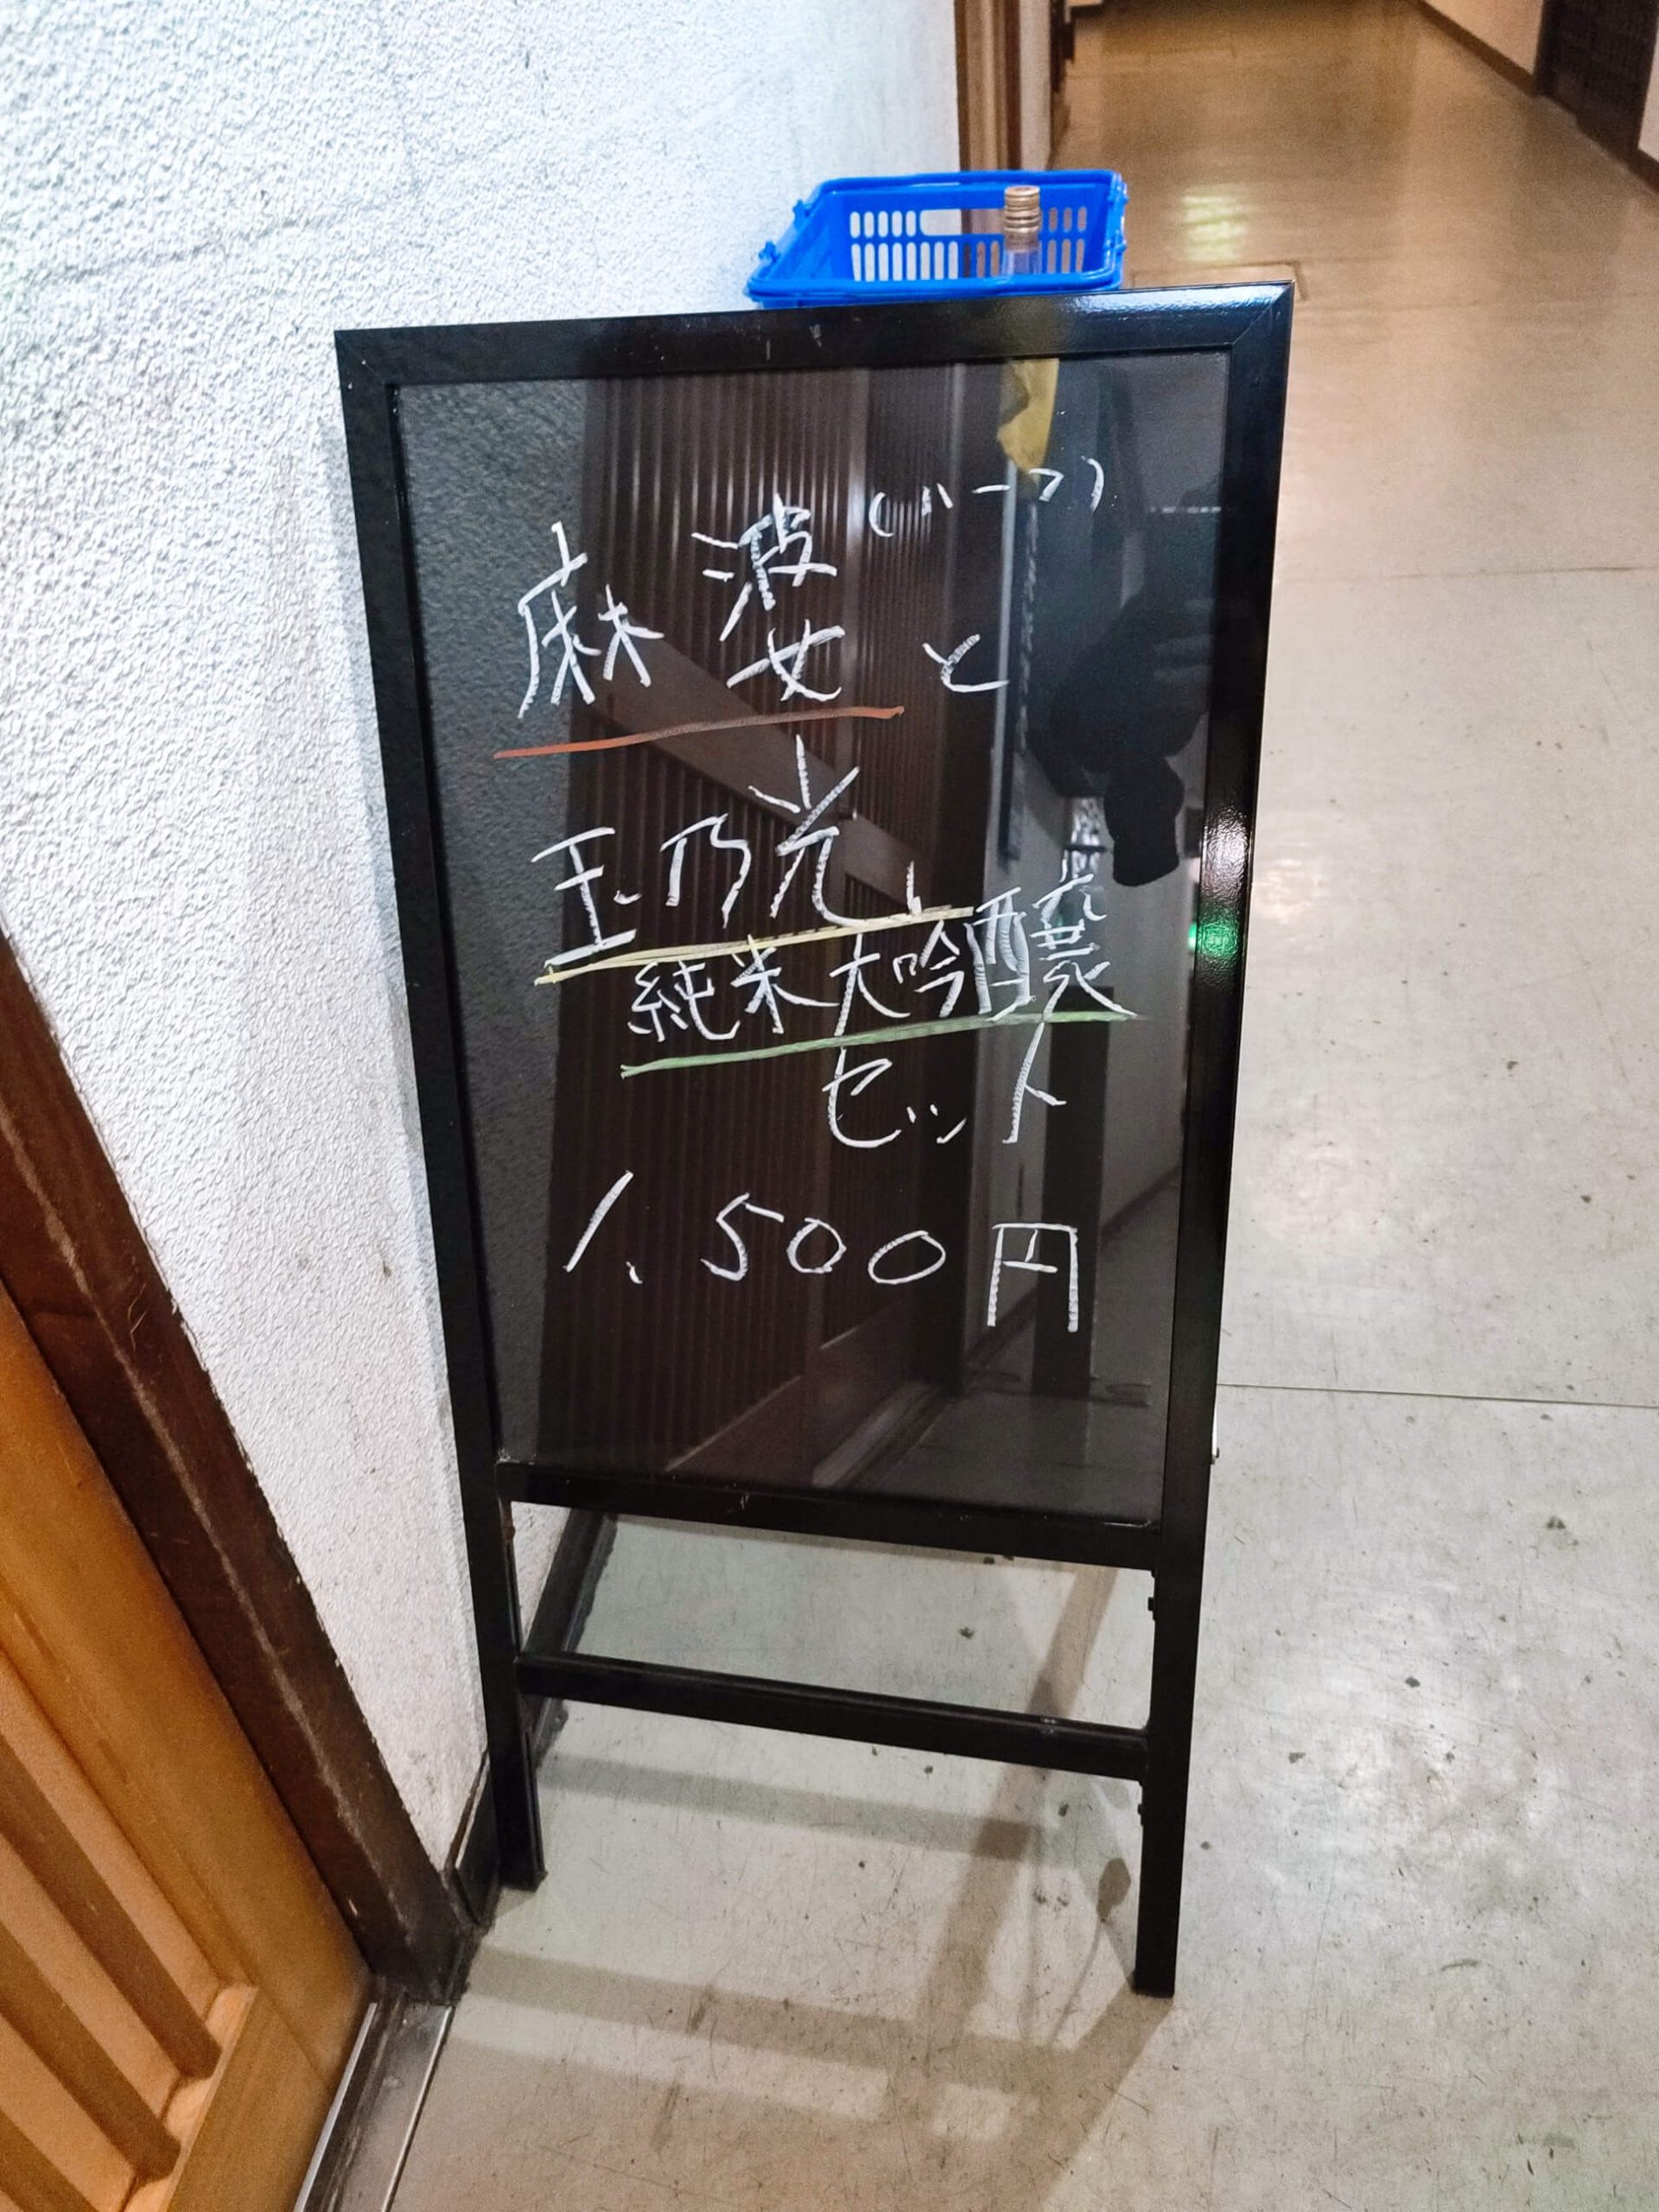 麻婆(ハーフ)と
玉乃光、
純米大吟醸
セット
1,500円